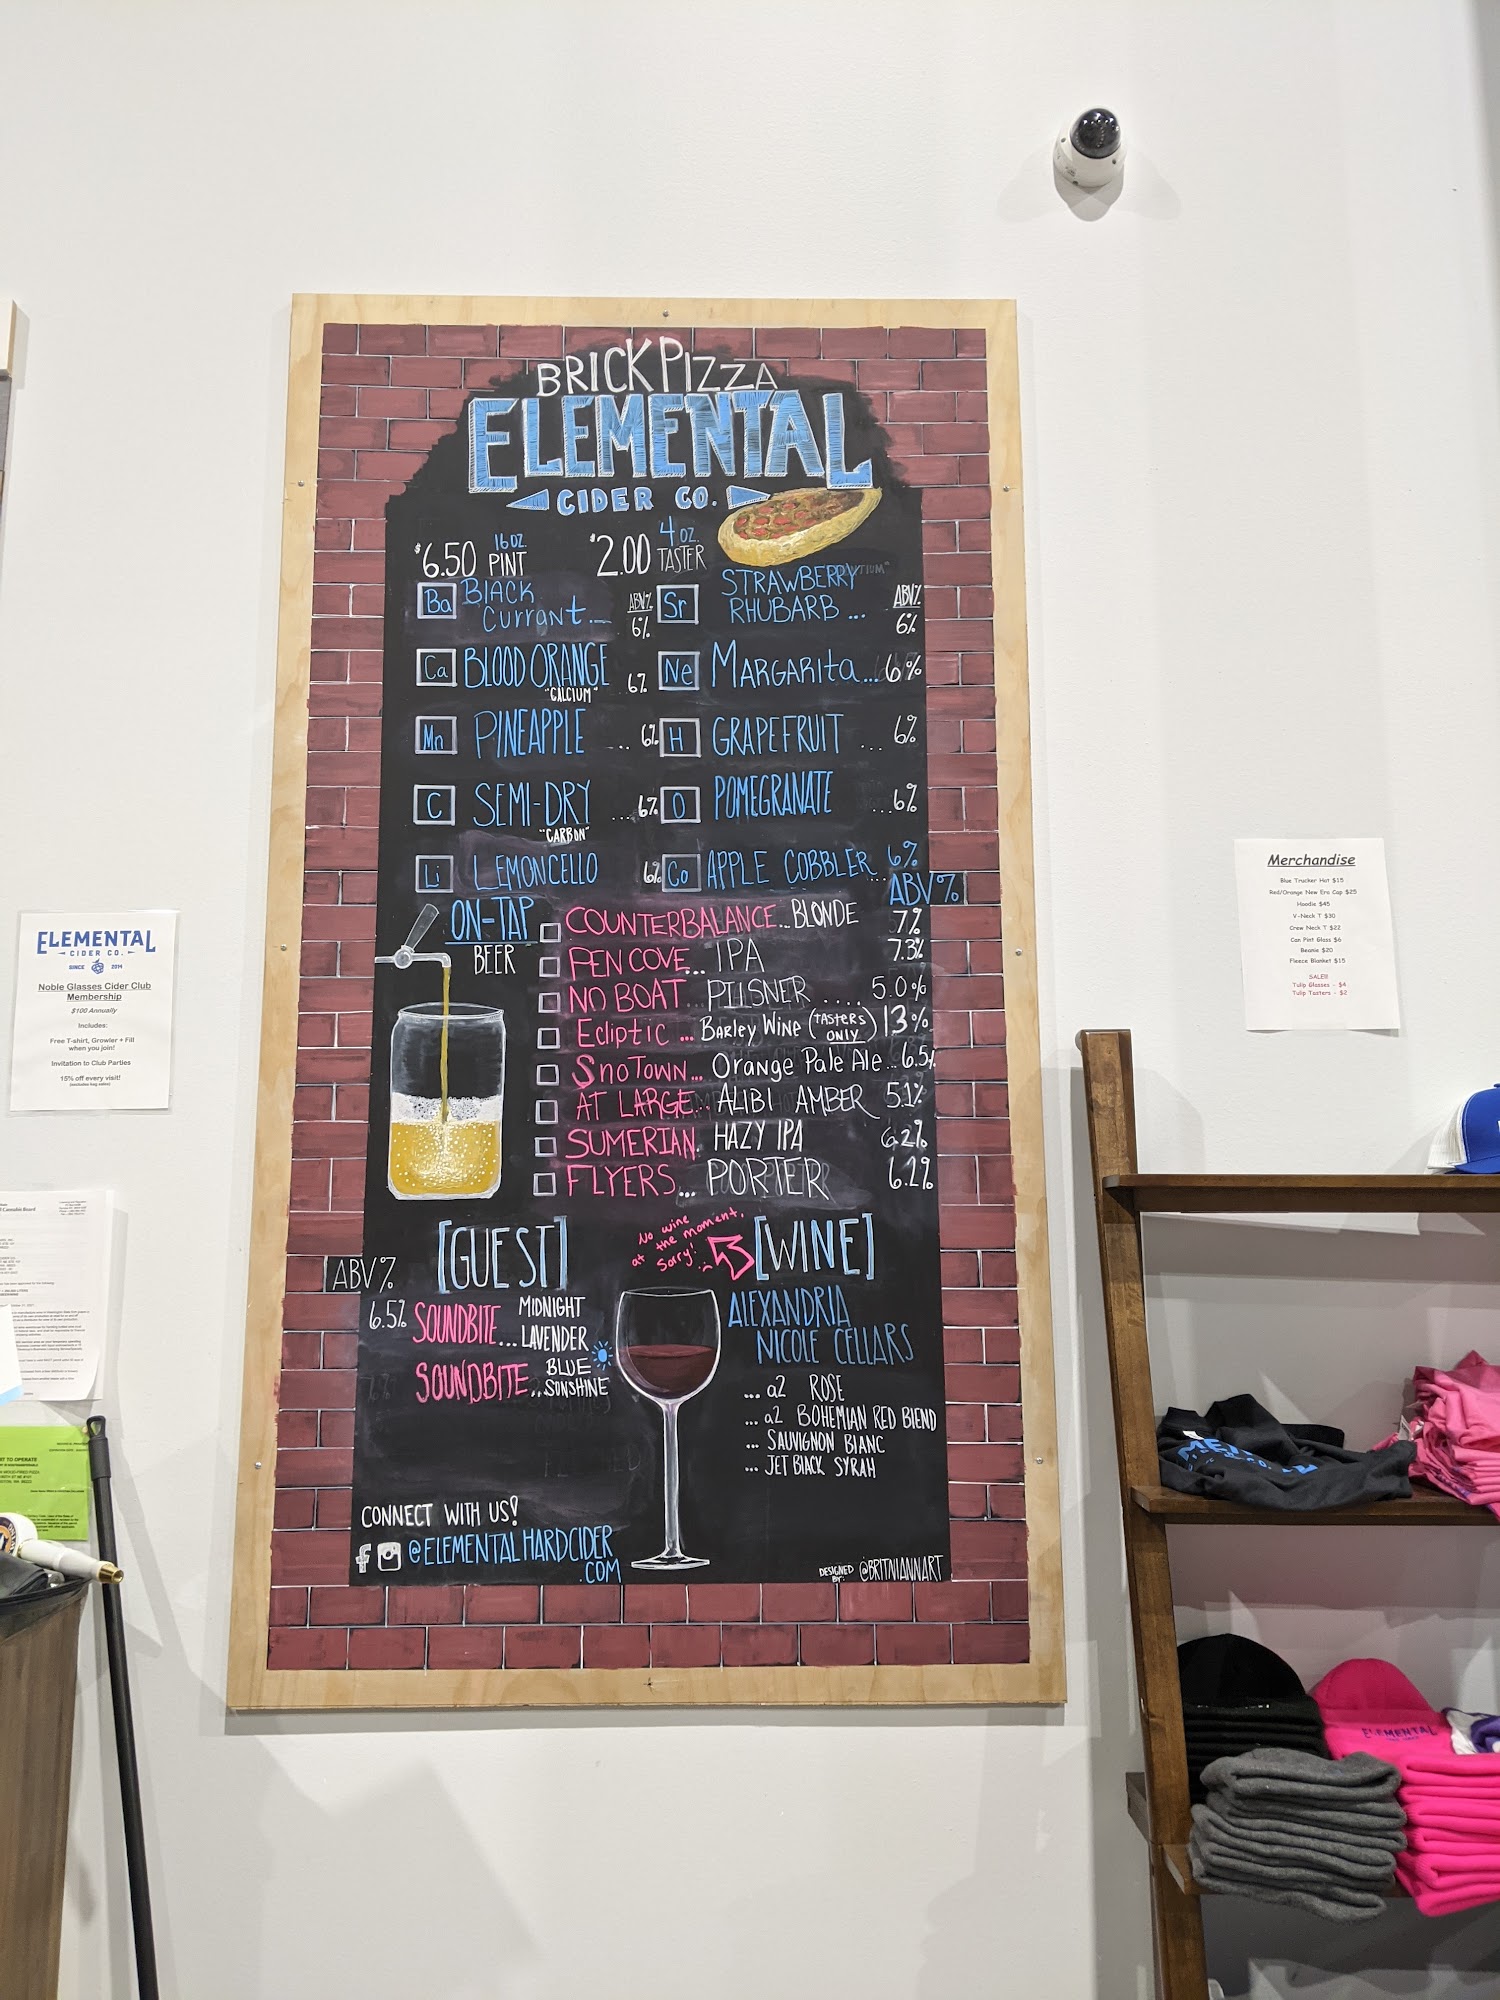 BRICK PIZZA
ELEMENTAL
CIDER CO.
$6.50 16 OZ. PINT
$2.00 4 OZ. TASTER
Ba BLACK CURRANT... ABV% 6%
Sr STRAWBERRY RHUBARB... ABV% 6%
Ca BLOOD ORANGE "CALCIUM" 6%
Ne MARGARITA... 6%
Mn PINEAPPLE ... 6%
H GRAPEFRUIT ... 6%
C SEMI-DRY "CARBON" ... 6%
O POMEGRANATE ... 6%
Li LEMONCELLO 6%
Co APPLE COBBLER... 6%
ABV%
ON-TAP
BEER
COUNTERBALANCE... BLONDE 7%
PEN COVE... IPA 7.3%
NO BOAT... PILSNER .... 5.0%
Ecliptic ... Barley Wine (TASTERS ONLY) 13%
SnoTown... Orange Pale Ale... 6.5%
AT LARGE... ALIBI AMBER 5.1%
SUMERIAN. HAZY IPA 6.2%
FLYERS... PORTER 6.2%
[GUEST]
ABV%
6.5% SOUNDBITE... MIDNIGHT LAVENDER
SOUNDBITE... BLUE SUNSHINE
No wine
at the moment.
Sorry!
[WINE]
ALEXANDRIA
NICOLE CELLARS
... a2 ROSE
... a2 BOHEMIAN RED BLEND
... SAUVIGNON BLANC
... JET BLACK SYRAH
CONNECT WITH US!
f @ELEMENTALHARDCIDER
.COM
DESIGNED BY: @BRITNIANNART
ELEMENTAL
CIDER CO.
SINCE 2014
Noble Glasses Cider Club
Membership
$100 Annually
Includes:
Free T-shirt, Growler + Fill
when you join!
Invitation to Club Parties
15% off every visit!
(excludes keg sales)
Merchandise
Blue Trucker Hat $15
Red/Orange New Era Cap $25
Hoodie $45
V-Neck T $30
Crew Neck T $22
Can Pint Glass $6
Beanie $20
Fleece Blanket $15
SALE!!
Tulip Glasses - $4
Tulip Tasters - $2
ELEMENTAL